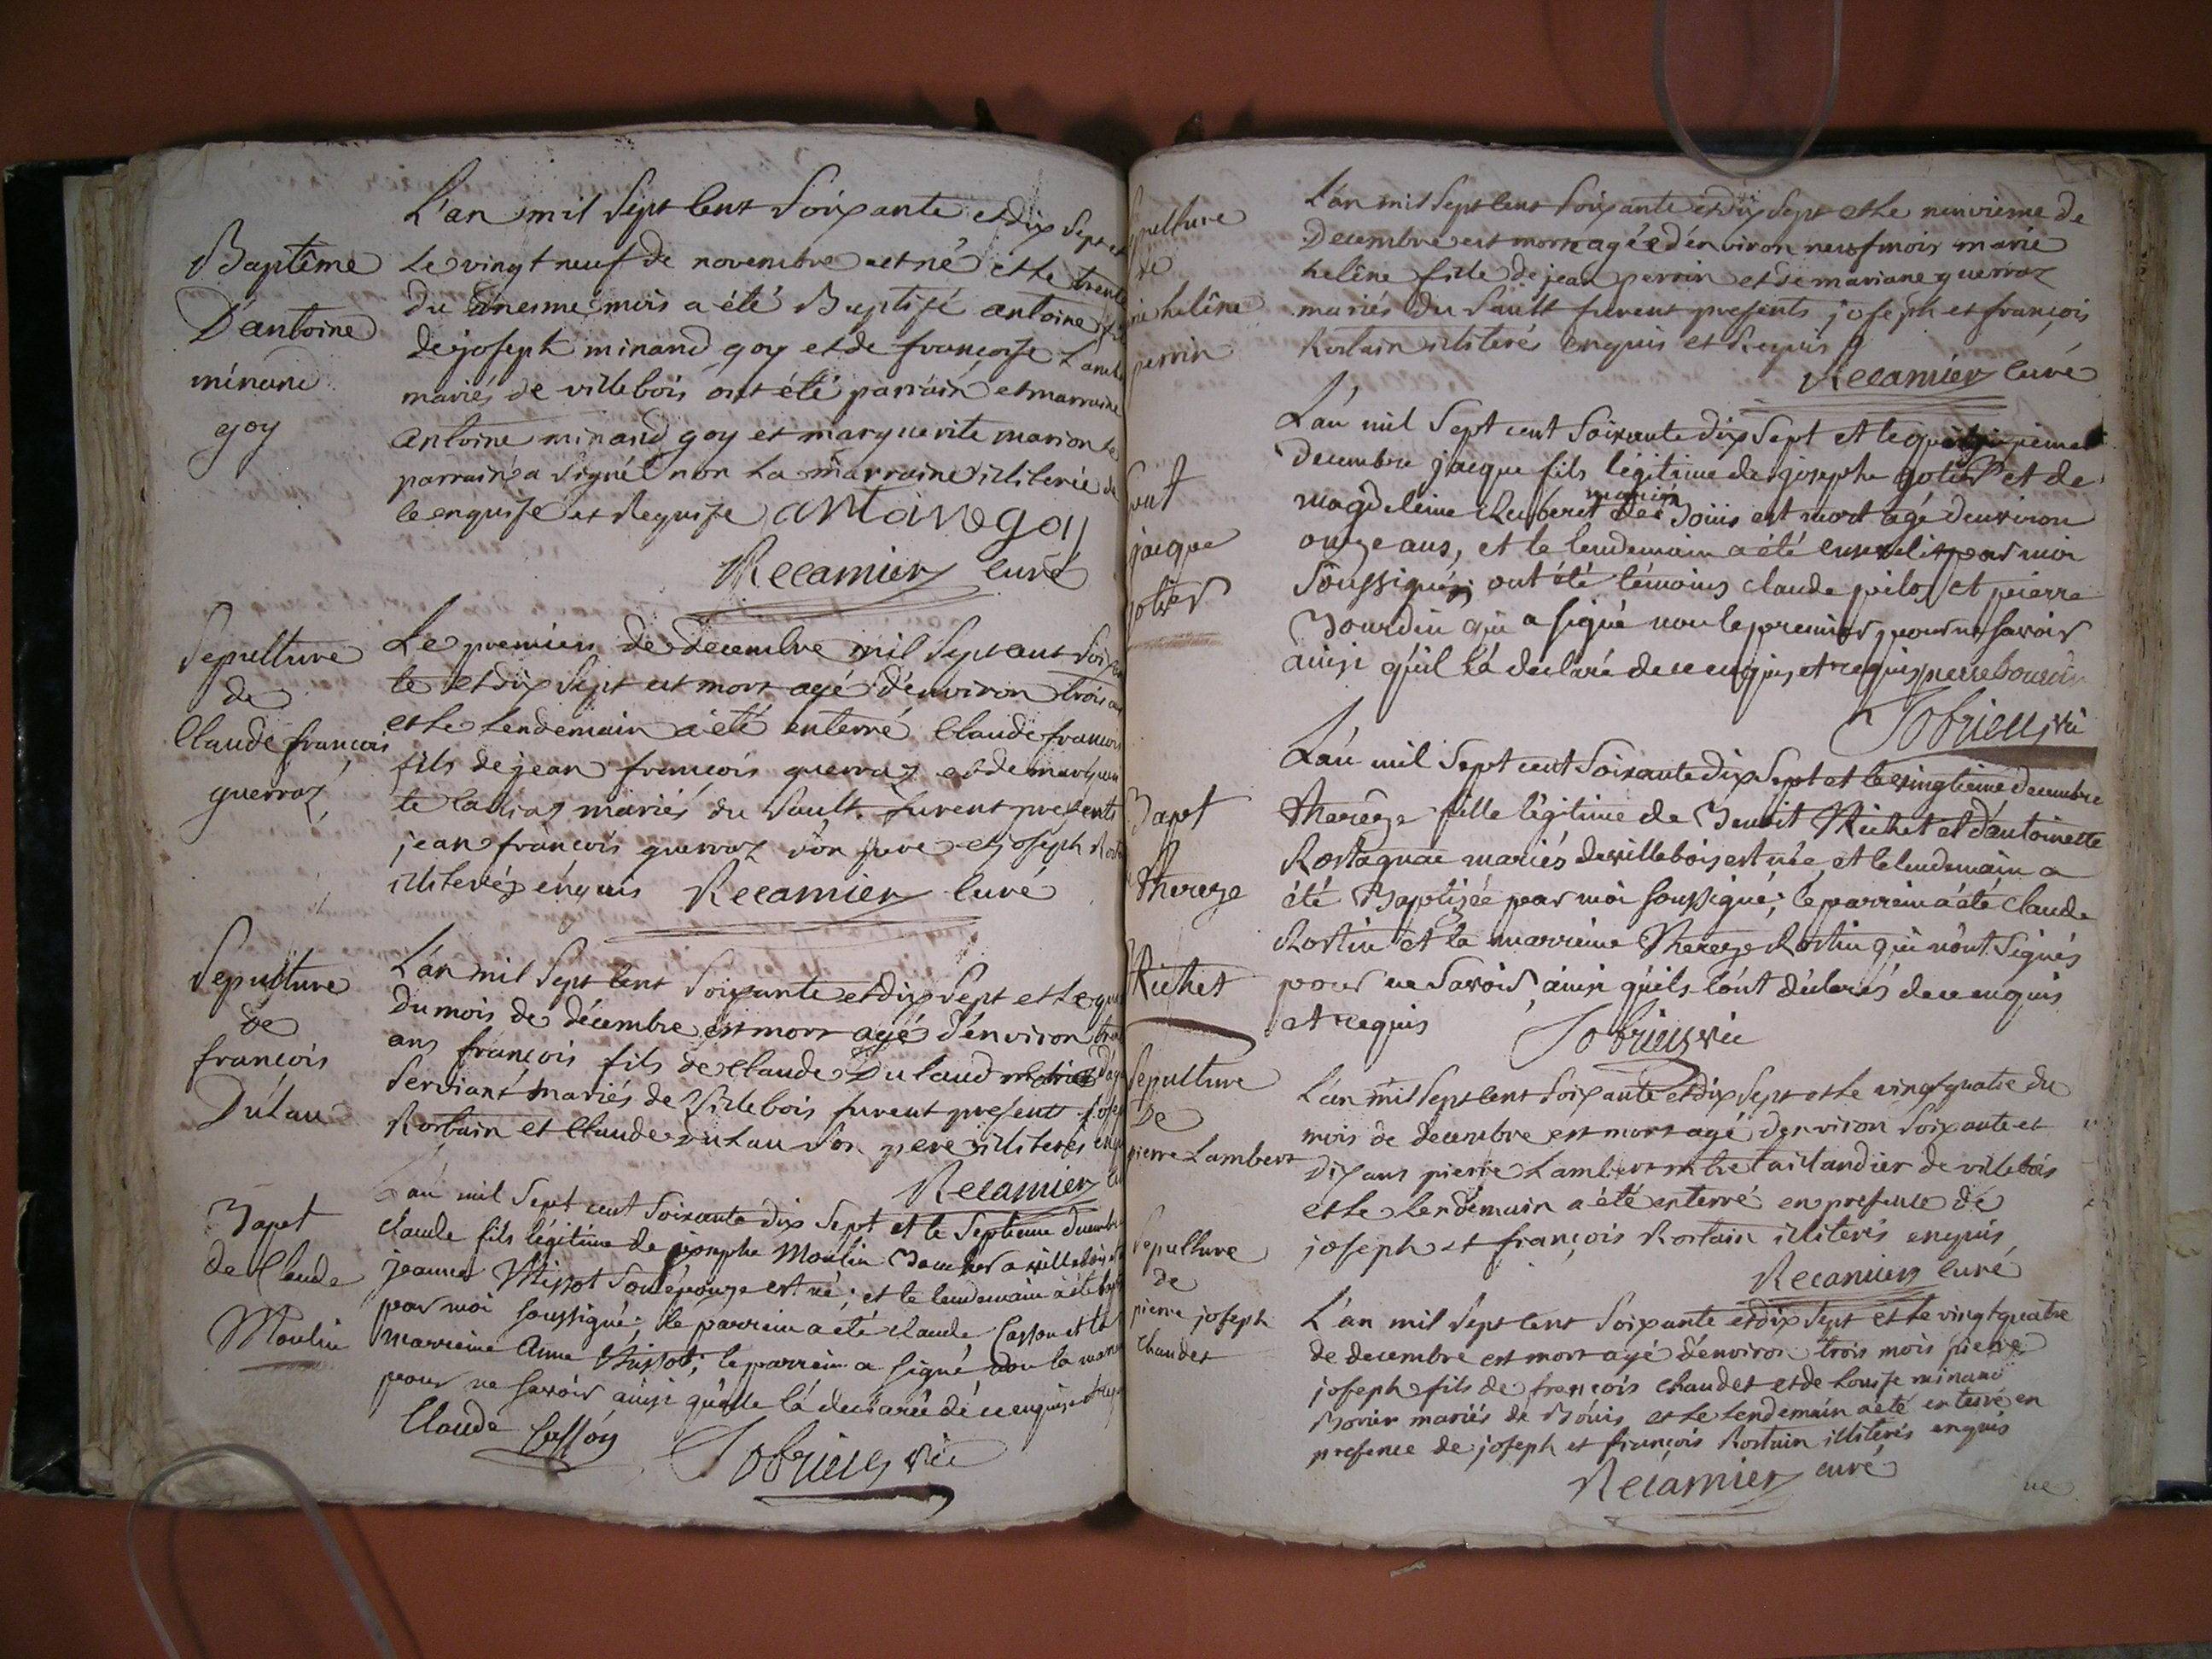 Baptême
D'antoine
minand
goy
L'an mil sept cent soixante et dix sept et
le vingt neuf de novembre est né et le trente
du mesme mois a été Baptisé antoine fils
de joseph minand goy et de françoise
mariés de villebois ont été parrain et marraine
antoine minand goy et marguerite marion le
parrain a signé non la marraine illiterée de
ce enquise et Requise antoine goy
Recamier curé
Sepulture
de
Claude françois
guerraz
Le premier de decembre mil sept cent soixan
te et dix sept est mort agé d'environ trois ans
et le lendemain a été enterré Claude françois
fils de jean françois guerraz et de margueri
te mariés du Sault furent presents
jean françois guerraz son pere et joseph
illiterés enquis Recamier curé
Sepulture
de
françois
Dulau
L'an mil sept cent soixante et dix sept et le
du mois de décembre est mort agé d'environ
ans françois fils de Claude Dulaud
Serviant mariés de Villebois furent presents joseph
Rortain et Claude Dulau son pere illiterés enquis
Recamier curé
Bapt
de Claude
Moulin
L'an mil sept cent soixante dix sept et le septieme decembre
claude fils légitime de josephe Moulin a villebois et
jeanne Missot son épouze est né; et le lendemain a été
par moi soussigné; le parrein a été claude Casson et la
marreine anne Missot; le parrein a signé non la marreine
pour ne savoir ainsi qu'elle l'a declaré de ce enquise et
Claude Casson
Jobrieux vic
Sepulture
de
marie helêne
perrin
L'an mil sept cent soixante et dix sept et le neuvieme de
Decembre est morte agée d'environ neuf mois marie
helêne fille de jean perrin et de mariane guerraz
mariés du Sault furent presents joseph et françois
Rortain illiterés enquis et Requis
Recamier curé
jacque
Gotier
L'an mil sept cent soixante dix sept et le
decembre jacque fils légitime de josephe gotier et de
magdeleine mariés de Bouis est mort agé d'environ
onze ans, et le lendemain a été enseveli par moi
soussigné; ont été témoins claude pilos et pierre
Bourdin qui a signé non le premier pour ne savoir
ainsi qu'il l'a declaré de ce enquis et requis pierre bourdin
Jobrieux vic
Bapt
Thereze
Richet
L'an mil sept cent soixante dix sept et le vingtieme decembre
Thereze fille légitime de Benoit Richet et d'antoinette
Rostagnac mariés de villebois est née, et le lendemain a
été Baptizée par moi soussigné; le parrein a été claude
Rostin et la marreine Thereze Rostin qui n'ont signés
pour ne savoir, ainsi qu'ils l'ont déclarés de ce enquis
et requis Jobrieux vic
Sepulture
De
pierre Lambert
L'an mil sept cent soixante et dix sept et le vingt quatre du
mois de decembre est mort agé d'environ soixante et
dix ans pierre Lambert mtre taillandier de villebois
et le lendemain a été enterré en presence de
joseph et françois Rortain illiterés enquis
Recamier curé
Sepulture
de
pierre joseph
Chaudet
L'an mil sept cent soixante et dix sept et le vingt quatre
de decembre est mort agé d'environ trois mois pierre
joseph fils de françois chaudet et de Louise minand
Borier mariés de Bouis et le lendemain a été enterré en
presence de joseph et françois Rortain illiterés enquis
Recamier curé
ne